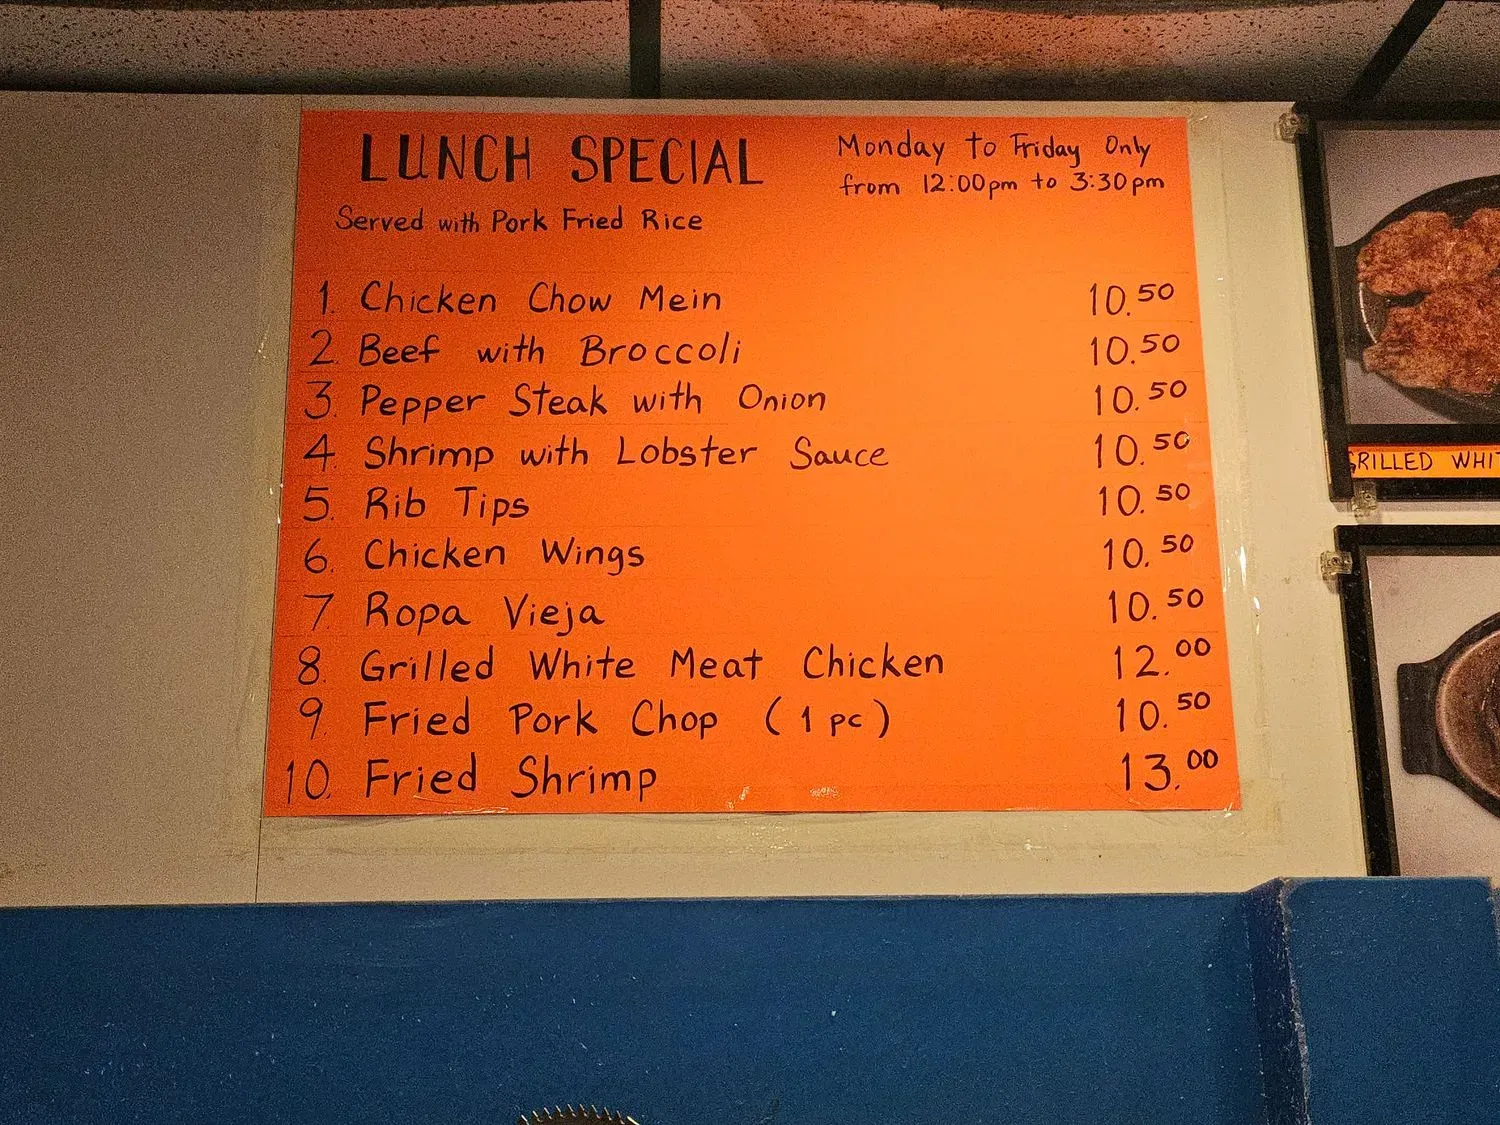 LUNCH SPECIAL
Monday to Friday Only
from 12:00pm to 3:30pm
Served with Pork Fried Rice
1. Chicken Chow Mein 10.50
2. Beef with Broccoli 10.50
3. Pepper Steak with Onion 10.50
4. Shrimp with Lobster Sauce 10.50
5. Rib Tips 10.50
6. Chicken Wings 10.50
7. Ropa Vieja 10.50
8. Grilled White Meat Chicken 12.00
9. Fried Pork Chop (1 pc) 10.50
10. Fried Shrimp 13.00
GRILLED WHIT